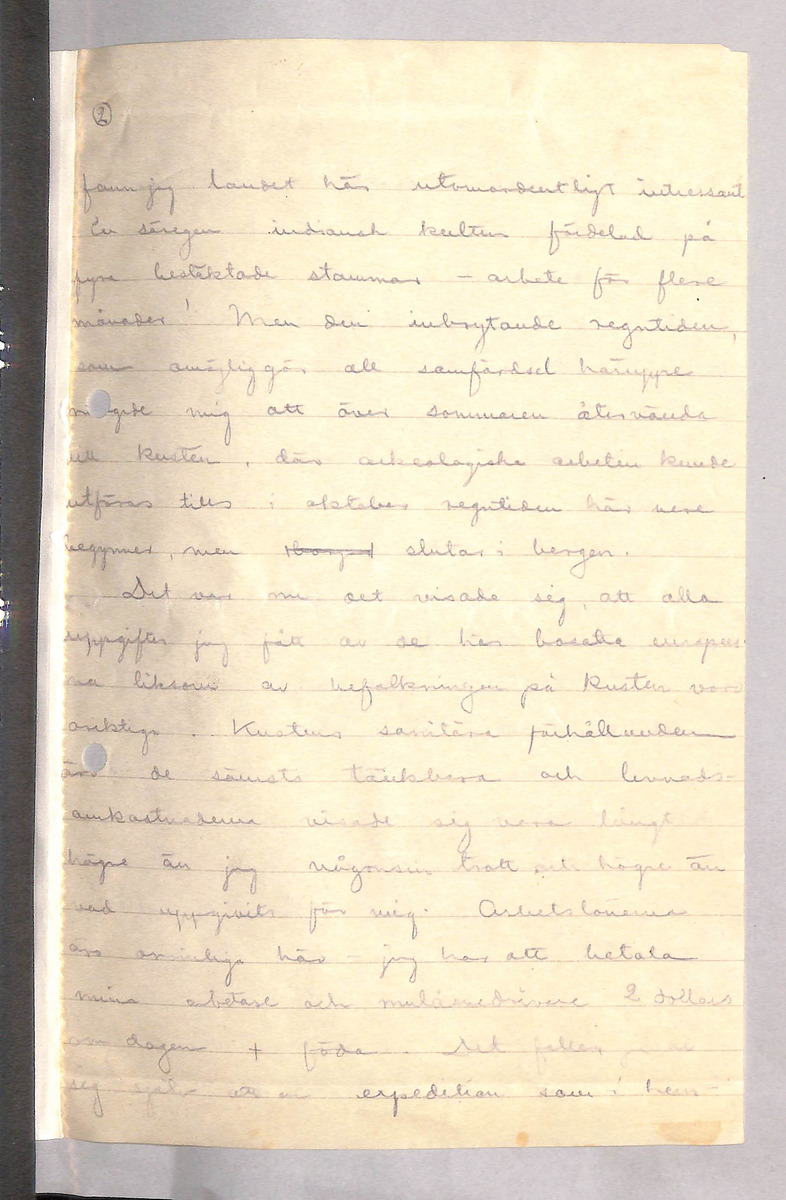 2
fann jag landet här utomordentligt intressant
En säregen indiansk kultur fördelad på
fyra besläktade stammar – arbete för flere
månader! Men den inbrytande regntiden,
som omöjliggör all samfärdsel häruppe
mig att över sommaren återvända
till kusten, där arkeologiska arbeten kunde
utföras tills i oktober regntiden här nere
begynner, men slutar i bergen.
Det var nu det visade sig, att alla
uppgifter jag fått av de här bosatta europeer-
na liksom av befolkningen på kusten voro
oriktiga. Kustens sanitära förhållanden
äro de sämsta tänkbara och levnads-
omkostnaderna visade sig vara långt
högre än jag någonsin trott och högre än
vad uppgivits för mig. Arbetslönerna
äro orimliga här – jag har att betala
mina arbetare och mulåsnedrivare 2 dollars
om dagen + föda. Det faller av
sig själv att en expedition som i hem-